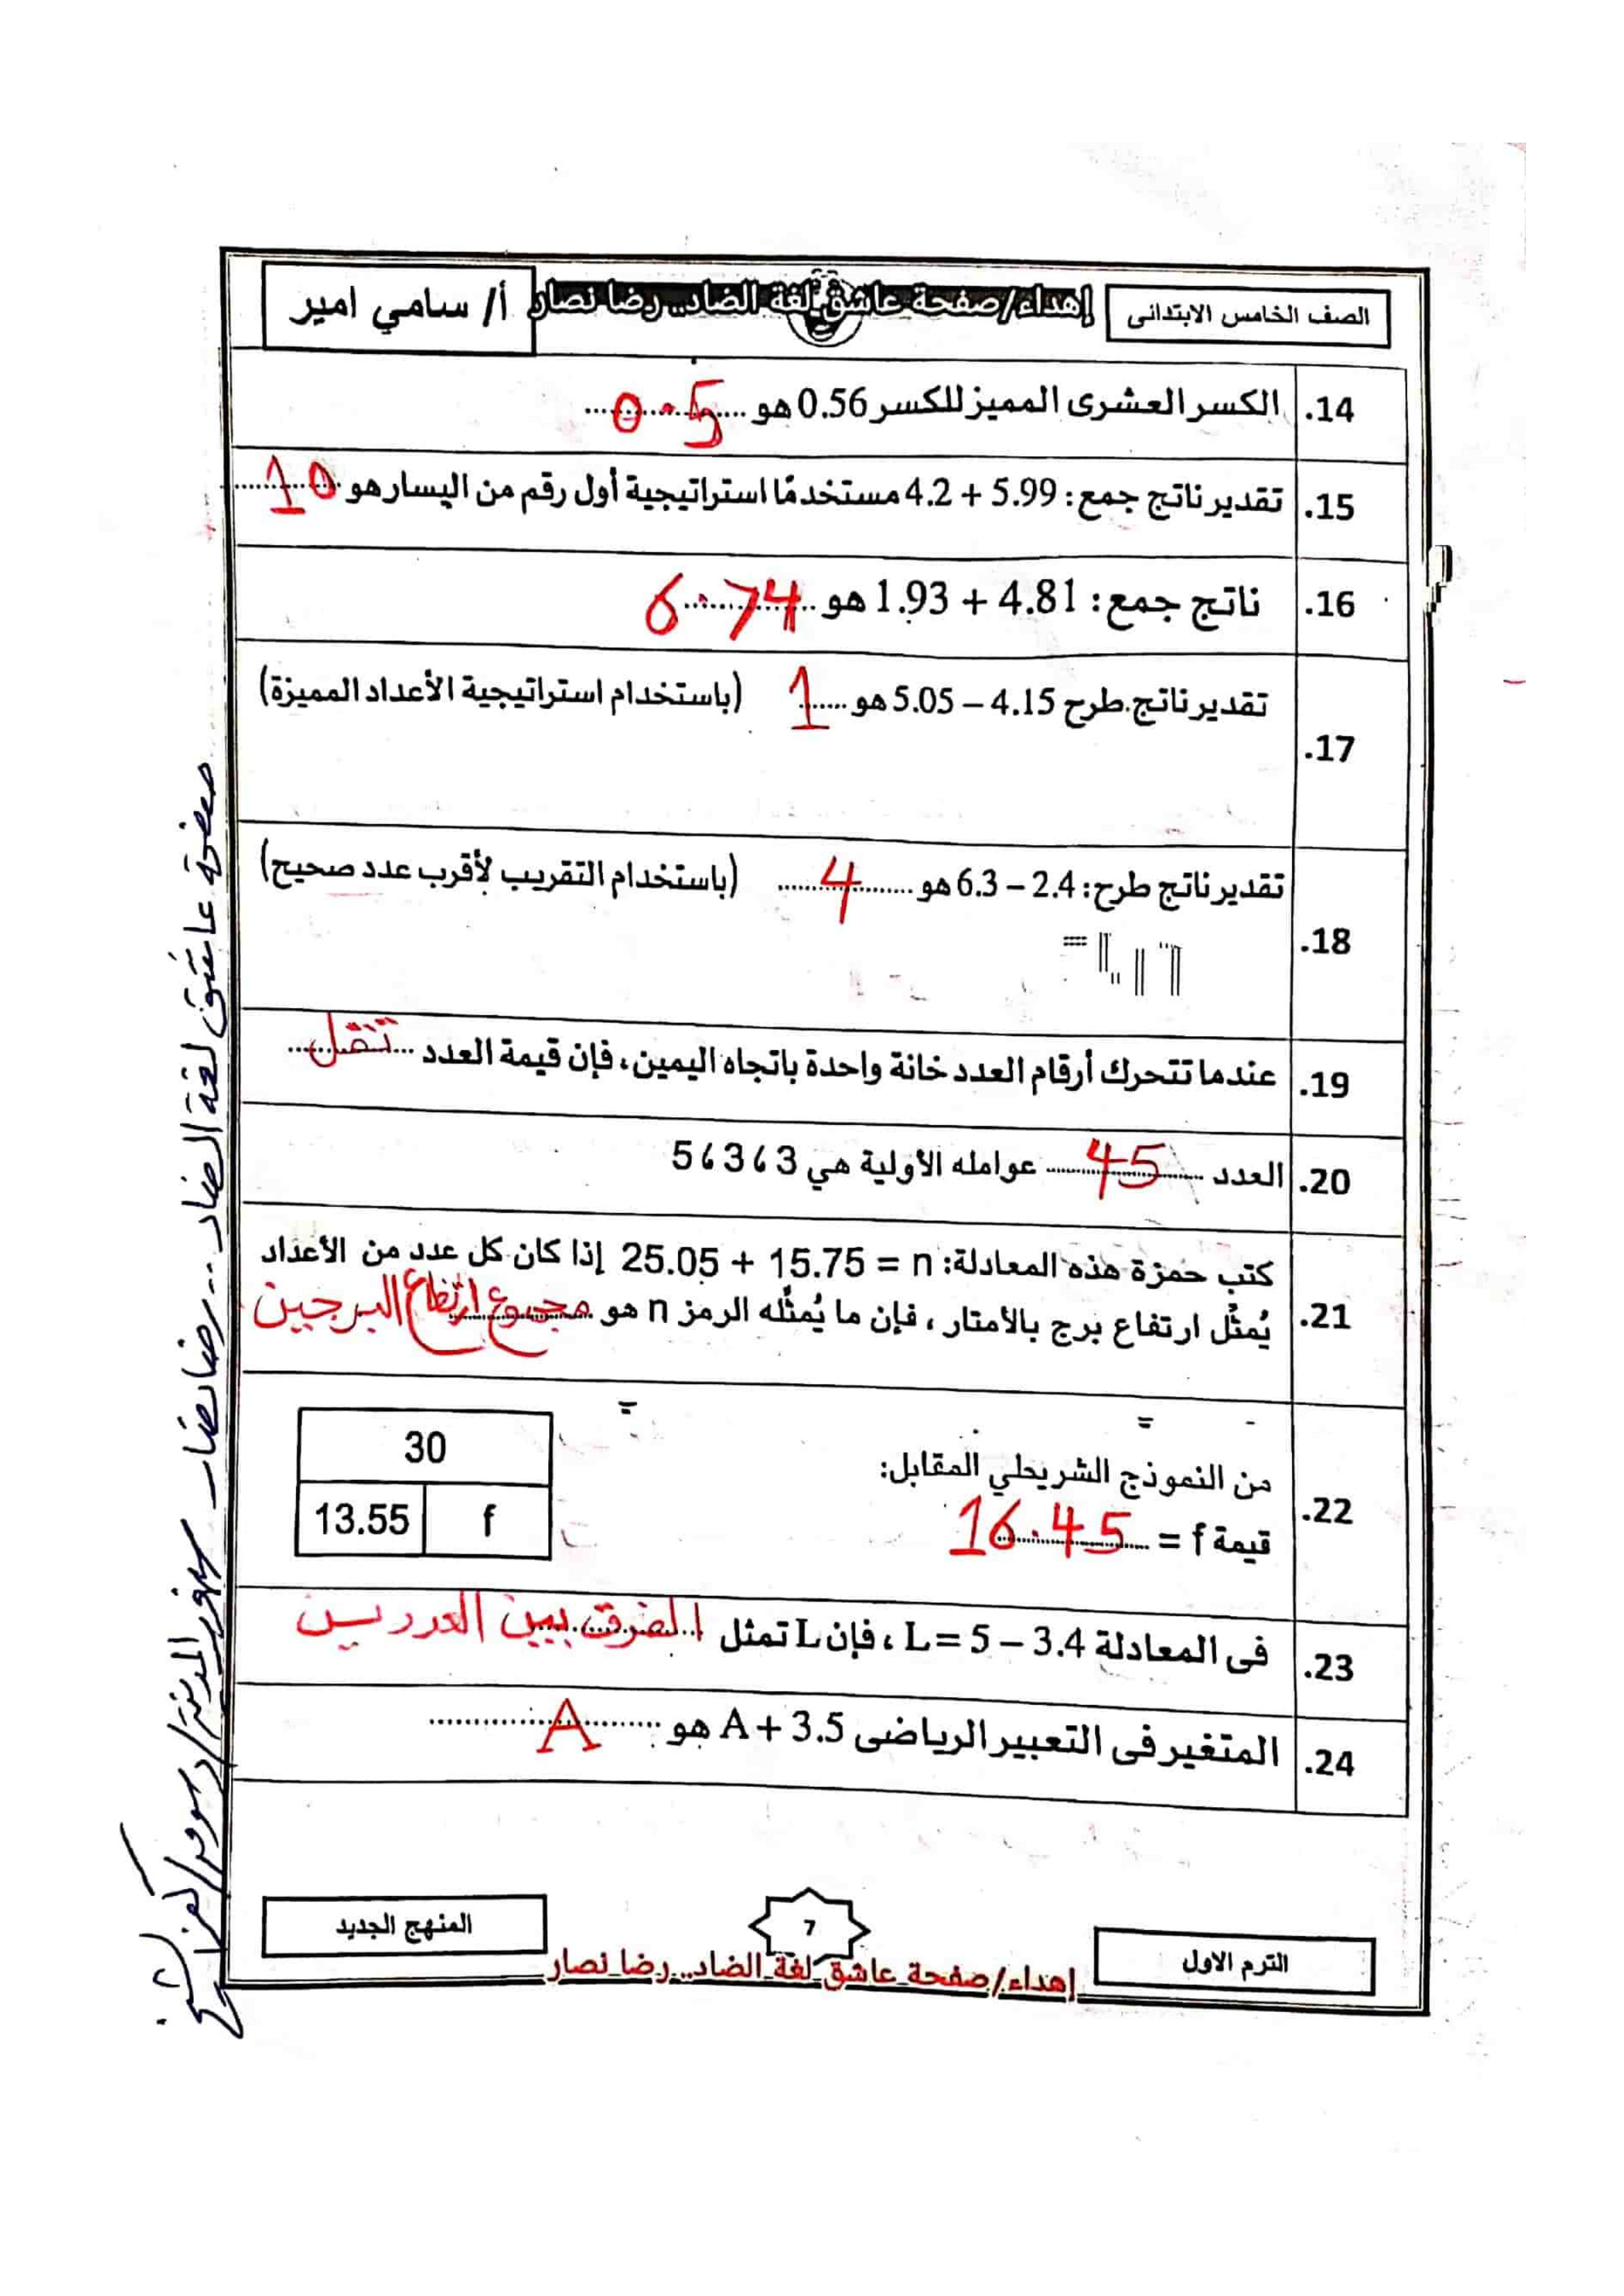 الصف الخامس الابتدائى
إهداء/صفحة عاشق لغة الضاد.. رضا نصار
أ/ سامي امير
14. الكسر العشرى المميز للكسر 0.56 هو 0.5
15. تقدير ناتج جمع: 5.99 + 4.2 مستخدمًا استراتيجية أول رقم من اليسار هو 10
16. ناتج جمع: 4.81 + 1.93 هو 6.74
17. تقدير ناتج طرح 4.15 – 5.05 هو 1 (باستخدام استراتيجية الأعداد المميزة)
18. تقدير ناتج طرح: 2.4 – 6.3 هو 4 (باستخدام التقريب لأقرب عدد صحيح)
19. عندما تتحرك أرقام العدد خانة واحدة باتجاه اليمين، فإن قيمة العدد تقل
20. العدد 45 عوامله الأولية هي 3 ، 3 ، 5
21. كتب حمزة هذه المعادلة: 25.05 + 15.75 = n إذا كان كل عدد من الأعداد
يُمثِّل ارتفاع برج بالأمتار ، فإن ما يُمثِّله الرمز n هو مجموع ارتفاع البرجين
22. من النموذج الشريطي المقابل:
قيمة f = 16.45
30
13.55 f
23. فى المعادلة L = 5 – 3.4 ، فإن L تمثل الفرق بين العددين
24. المتغير فى التعبير الرياضى A + 3.5 هو A
الترم الاول
7
المنهج الجديد
إهداء/صفحة عاشق لغة الضاد.. رضا نصار
صفحة عاشق لغة الضاد .. رضا نصار